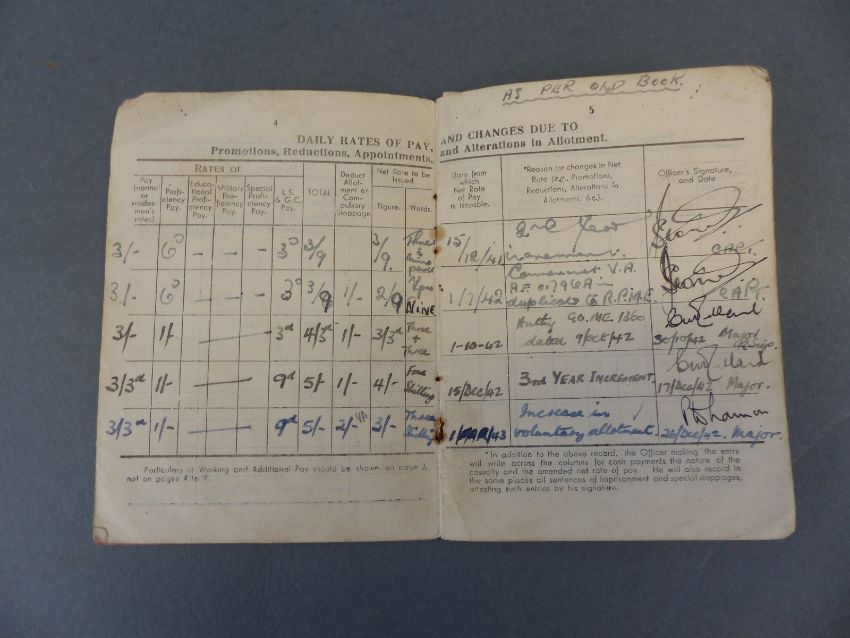 4
DAILY RATES OF PAY,
Promotions, Reductions, Appointments,
RATES OF
Pay (normal or tradesmen's rates)
Proficiency Pay.
Educational Proficiency Pay.
Military Proficiency Pay.
Special Proficiency Pay.
L.S. & G.C. Pay.
TOTAL
Deduct Allotment or Compulsory Stoppage
Net Rate to be Issued.
Figure.
Words.
3/- 6D — — — 3D 3/9 3/9. Three & nine pence
3/- 6D — — — 3D 3/9 1/- 2/9 NINE
3/- 1/- — 3d 4/3d 1/- 3/3d Three + Three
3/3d 1/- — 9d 5/- 1/- 4/- Four Shilling
3/3d 1/- — 9d 5/- 2/- 3/- Three Shilling
Particulars of Working and Additional Pay should be shown on page 3,
not on pages 4 to 9.
AS PER OLD BOOK.
5
AND CHANGES DUE TO
and Alterations in Allotment.
Date from which Net Rate of Pay is Issuable.
*Reason for changes in Net Rate (e.g., Promotions, Reductions, Alterations in Allotments, &c.).
Officer's Signature, and Date
15/12/41 2nd Year increment. CAPT.
1/7/42 Commenced V.A. A.F. O.1796A in duplicate to R.P.M.E. CAPT.
1-10-42 Authy G.O. M.E. 1360 dated 9/Oct/42 30/10/42 Major
15/Dec/42 3rd YEAR INCREMENT. 17/Dec/42 Major.
1/MAR/43 Increase in voluntary allotment. 26/Dec/42. Major.
*In addition to the above record, the Officer making the entry
will write across the columns for cash payments the nature of the
casualty and the amended net rate of pay. He will also record in
the same places all sentences of imprisonment and special stoppages,
attesting such entries by his signature.